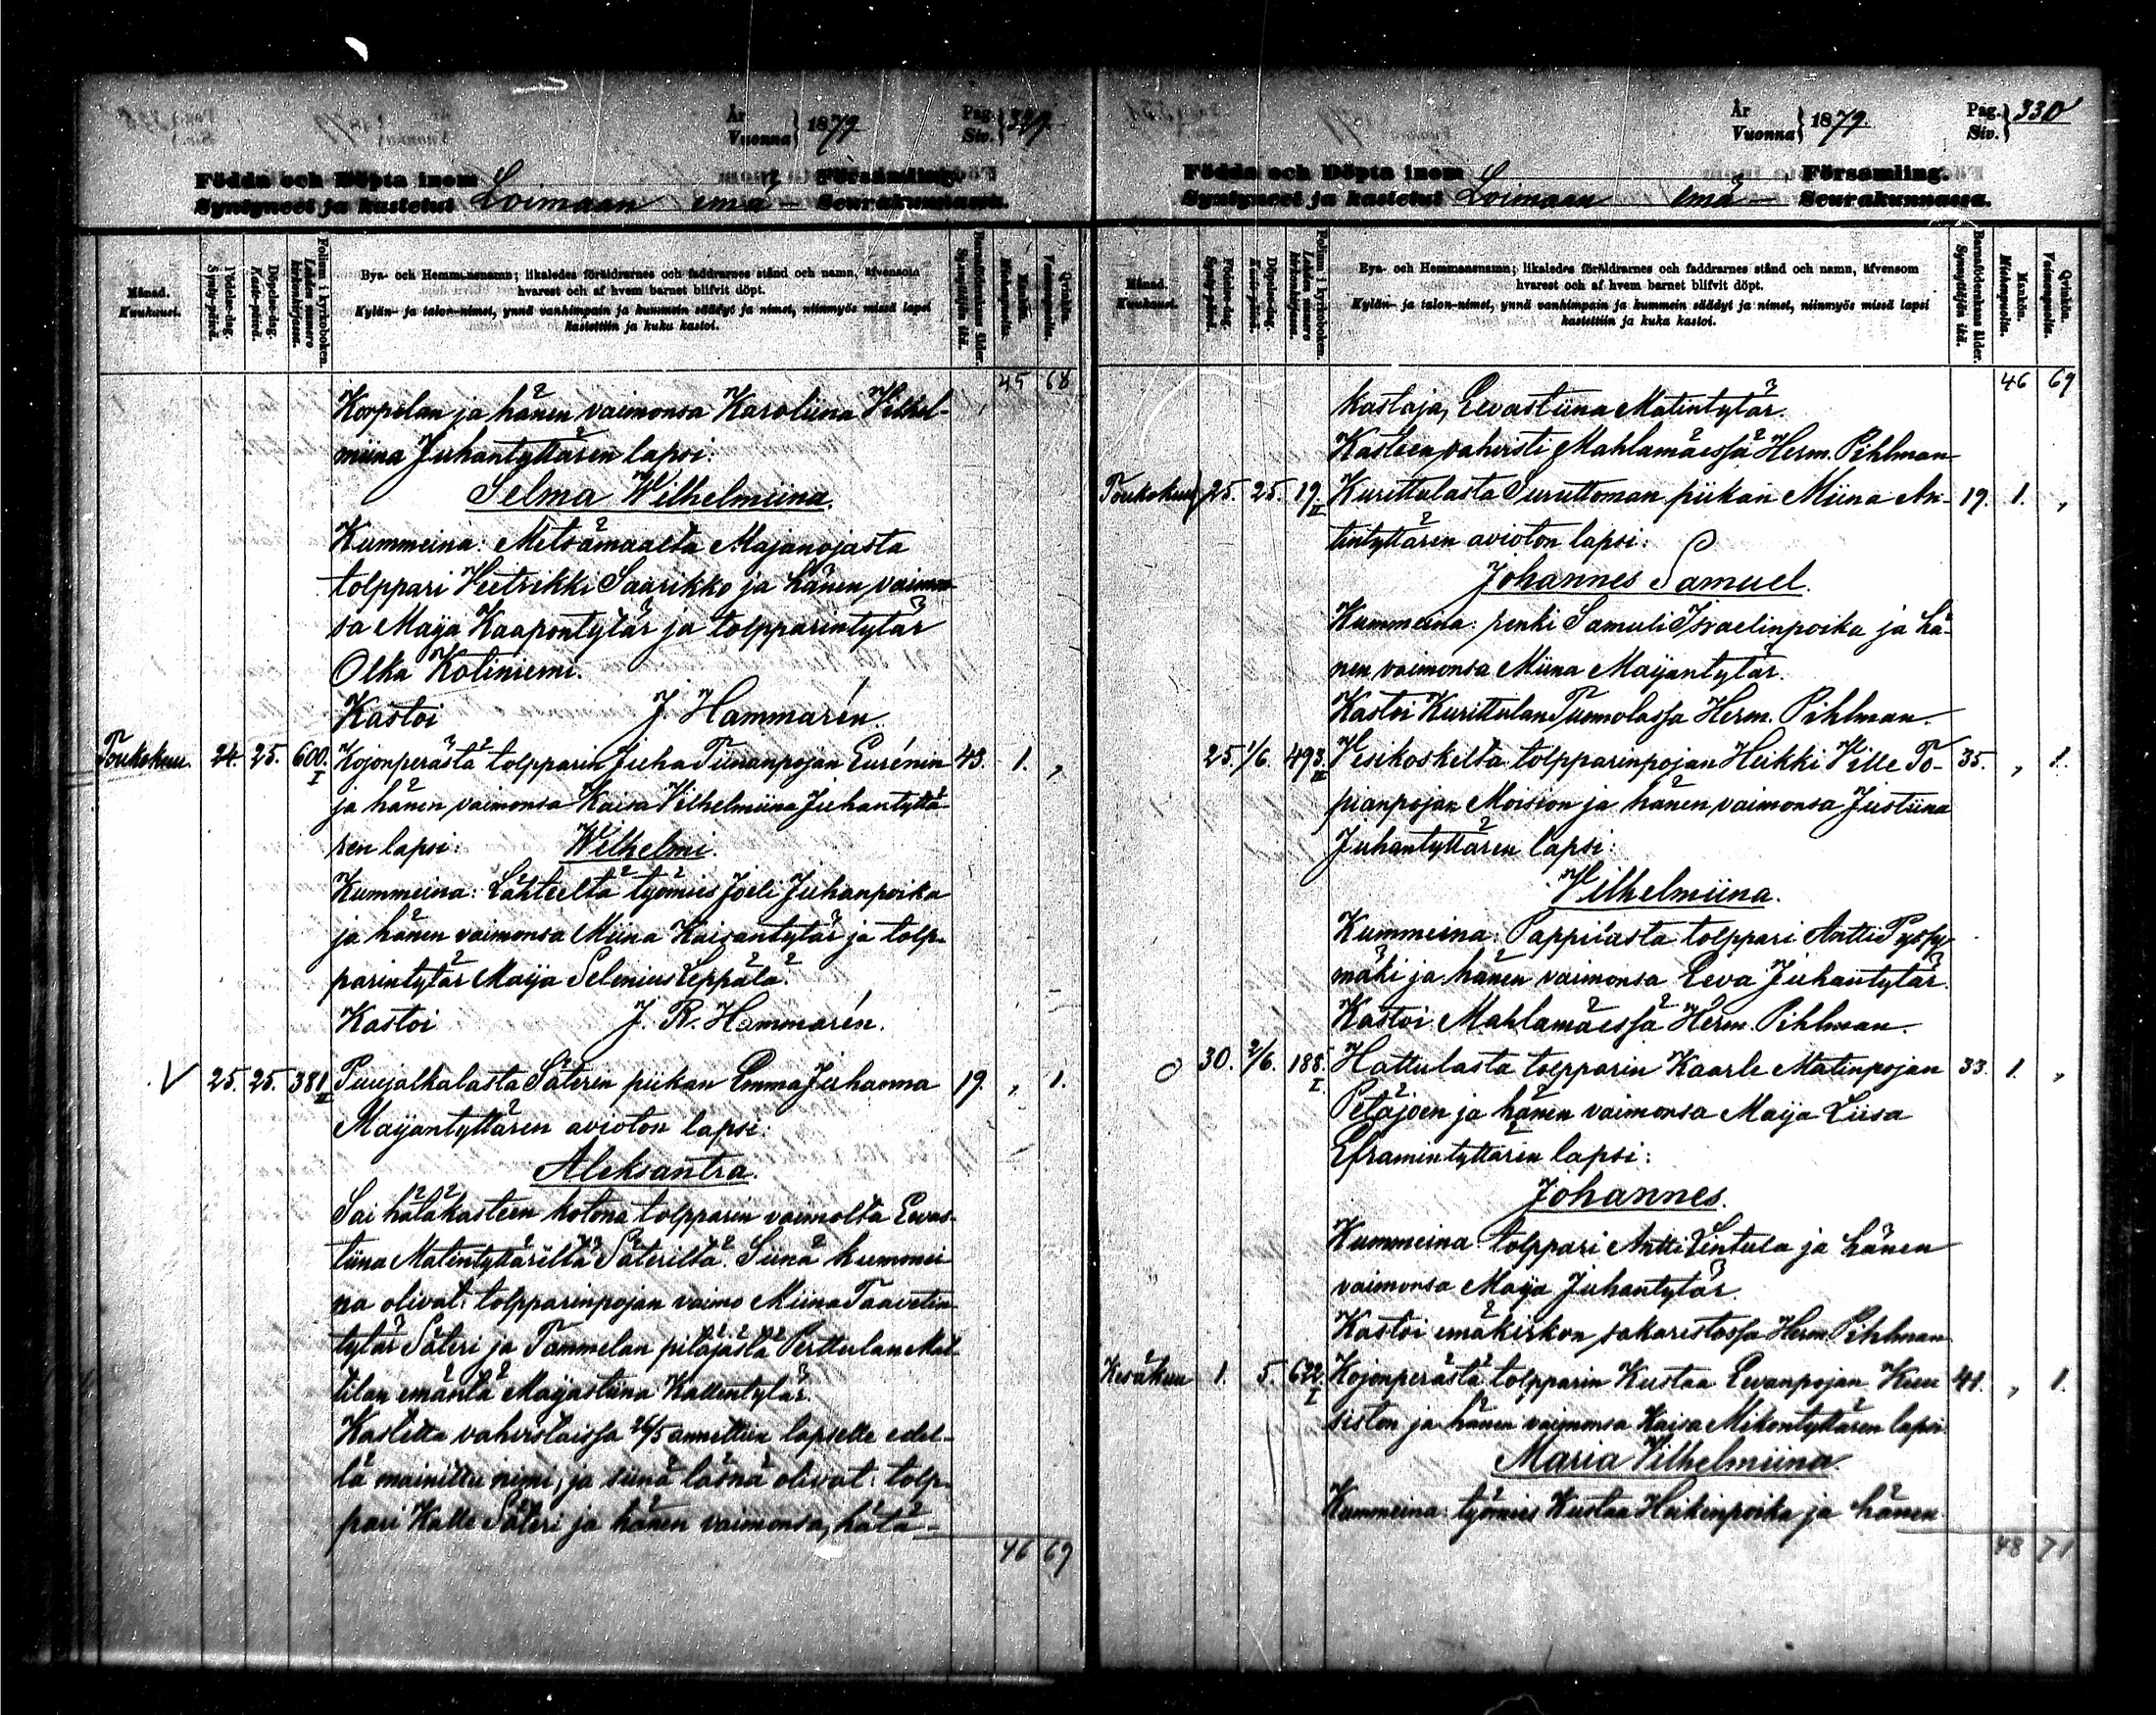 År
Vuonna } 1879
Pag.
Siv. } 329.
Födda och Döpta inom Församling.
Syntyneet ja kastetut Loimaan emä- Seurakunnassa.
Månad.
Kuukausi.
Födelse-dag.
Synty-päivä.
Döpelse-dag.
Kaste-päivä.
Folium i kyrkoboken.
Lehden numero kirkonkirjassa.
Bya- och Hemmansnamn; likaledes föräldrarnes och faddrarnes stånd och namn, äfvensom
hvarest och af hvem barnet blifvit döpt.
Kylän- ja talon-nimet, ynnä vanhimpain ja kummein säädyt ja nimet, niinmyös missä lapsi
kastettiin ja kuka kastoi.
Barnaföderskans ålder.
Synnyttäjän ikä.
Mankön.
Miehenpuolia.
Qvinkön.
Vaimonpuolia.
45 68
Korpelan ja hänen vaimonsa Karoliina Vilhel-
miina Juhantyttären lapsi:
Selma Wilhelmiina.
Kummeina: Metsämaalta Majanojasta
tolppari Veetrikki Saarikko ja hänen vaimon
sa Maija Kaapontytär ja tolpparintytär
Olka Kotiniemi.
Kastoi J. Hammarén.
Toukokuu. 24. 25. 600. I Kojonperästä tolpparin Juha Tiinanpojan Eurénin 43. 1. "
ja hänen vaimonsa Kaisa Vilhelmiina Juhantyttä
ren lapsi: Wilhelmi.
Kummeina: Lähteeltä työmies Joeli Juhanpoika
ja hänen vaimonsa Miina Kaisantytär ja tolp-
parintytär Maija Selenius Leppälä.
Kastoi J. R. Hammarén.
25. 25. 381 II Puujalkalasta Säteren piikan Emma Juhanna 19. " 1.
Maijantyttären avioton lapsi:
Aleksantra.
Sai hätäkasteen kotona tolpparin vaimolta Eevas-
tiina Matintyttäreltä Säteriltä. Siinä kummei
na olivat: tolpparinpojan vaimo Miina Taavetin
tytär Säteri ja Tammelan pitäjästä Perttulan Mat-
tilan emäntä Maijastiina Kallentytär.
Kastetta vahvistaissa 26/5 annettiin lapselle edel-
lä mainittu nimi, ja siinä läsnä olivat: tolp-
pari Kalle Säteri ja hänen vaimonsa, hätä-
46 69
År
Vuonna } 1879.
Pag.
Siv. } 330
Födda och Döpta inom Församling.
Syntyneet ja kastetut Loimaan emä- Seurakunnassa.
Månad.
Kuukausi.
Födelse-dag.
Synty-päivä.
Döpelse-dag.
Kaste-päivä.
Folium i kyrkoboken.
Lehden numero kirkonkirjassa.
Bya- och Hemmansnamn; likaledes föräldrarnes och faddrarnes stånd och namn, äfvensom
hvarest och af hvem barnet blifvit döpt.
Kylän- ja talon-nimet, ynnä vanhimpain ja kummein säädyt ja nimet, niinmyös missä lapsi
kastettiin ja kuka kastoi.
Barnaföderskans ålder.
Synnyttäjän ikä.
Mankön.
Miehenpuolia.
Qvinkön.
Vaimonpuolia.
46 69
kastaja, Eevastiina Matintytär.
Kasteen vahvisti Mahlamäessä Herm. Pihlman
Toukokuu 25. 25. 19. II Kurittulasta Suruttoman piikan Miina An- 19. 1. "
tintyttären avioton lapsi:
Johannes Samuel.
Kummeina: renki Samuli Israelinpoika ja hä-
nen vaimonsa Miina Maijantytär.
Kastoi Kurittulan Tuomolassa Herm. Pihlman.
25. 1/6. 493. II Vesikoskelta tolpparinpojan Heikki Ville To- 35. " 1.
pianpojan Moision ja hänen vaimonsa Justiina
Juhantyttären lapsi:
Vilhelmiina.
Kummeina: Pappilasta tolppari Antti Pyssy
mäki ja hänen vaimonsa Eeva Juhantytär.
Kastoi Mahlamäessä Herm. Pihlman.
30. 2/6. 188. I Hattulasta tolpparin Kaarle Matinpojan 33. 1. "
Petäjoen ja hänen vaimonsa Maija Liisa
Eframintyttären lapsi:
Johannes.
Kummeina: tolppari Antti Lintula ja hänen
vaimonsa Maija Juhantytär.
Kastoi emäkirkon sakaristossa Herm. Pihlman
Kesäkuu 1. 5. 622. I Kojonperästä tolpparin Kustaa Eevanpojan Kuu 41. " 1.
siston ja hänen vaimonsa Kaisa Mikontyttären lapsi
Maria Vilhelmiina.
Kummeina: työmies Kustaa Heikinpoika ja hänen
48 71